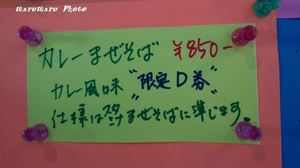 marumaru Photo
カレーまぜそば ¥850-
カレー風味 "限定D券"
仕様はまぜそばに準じます。